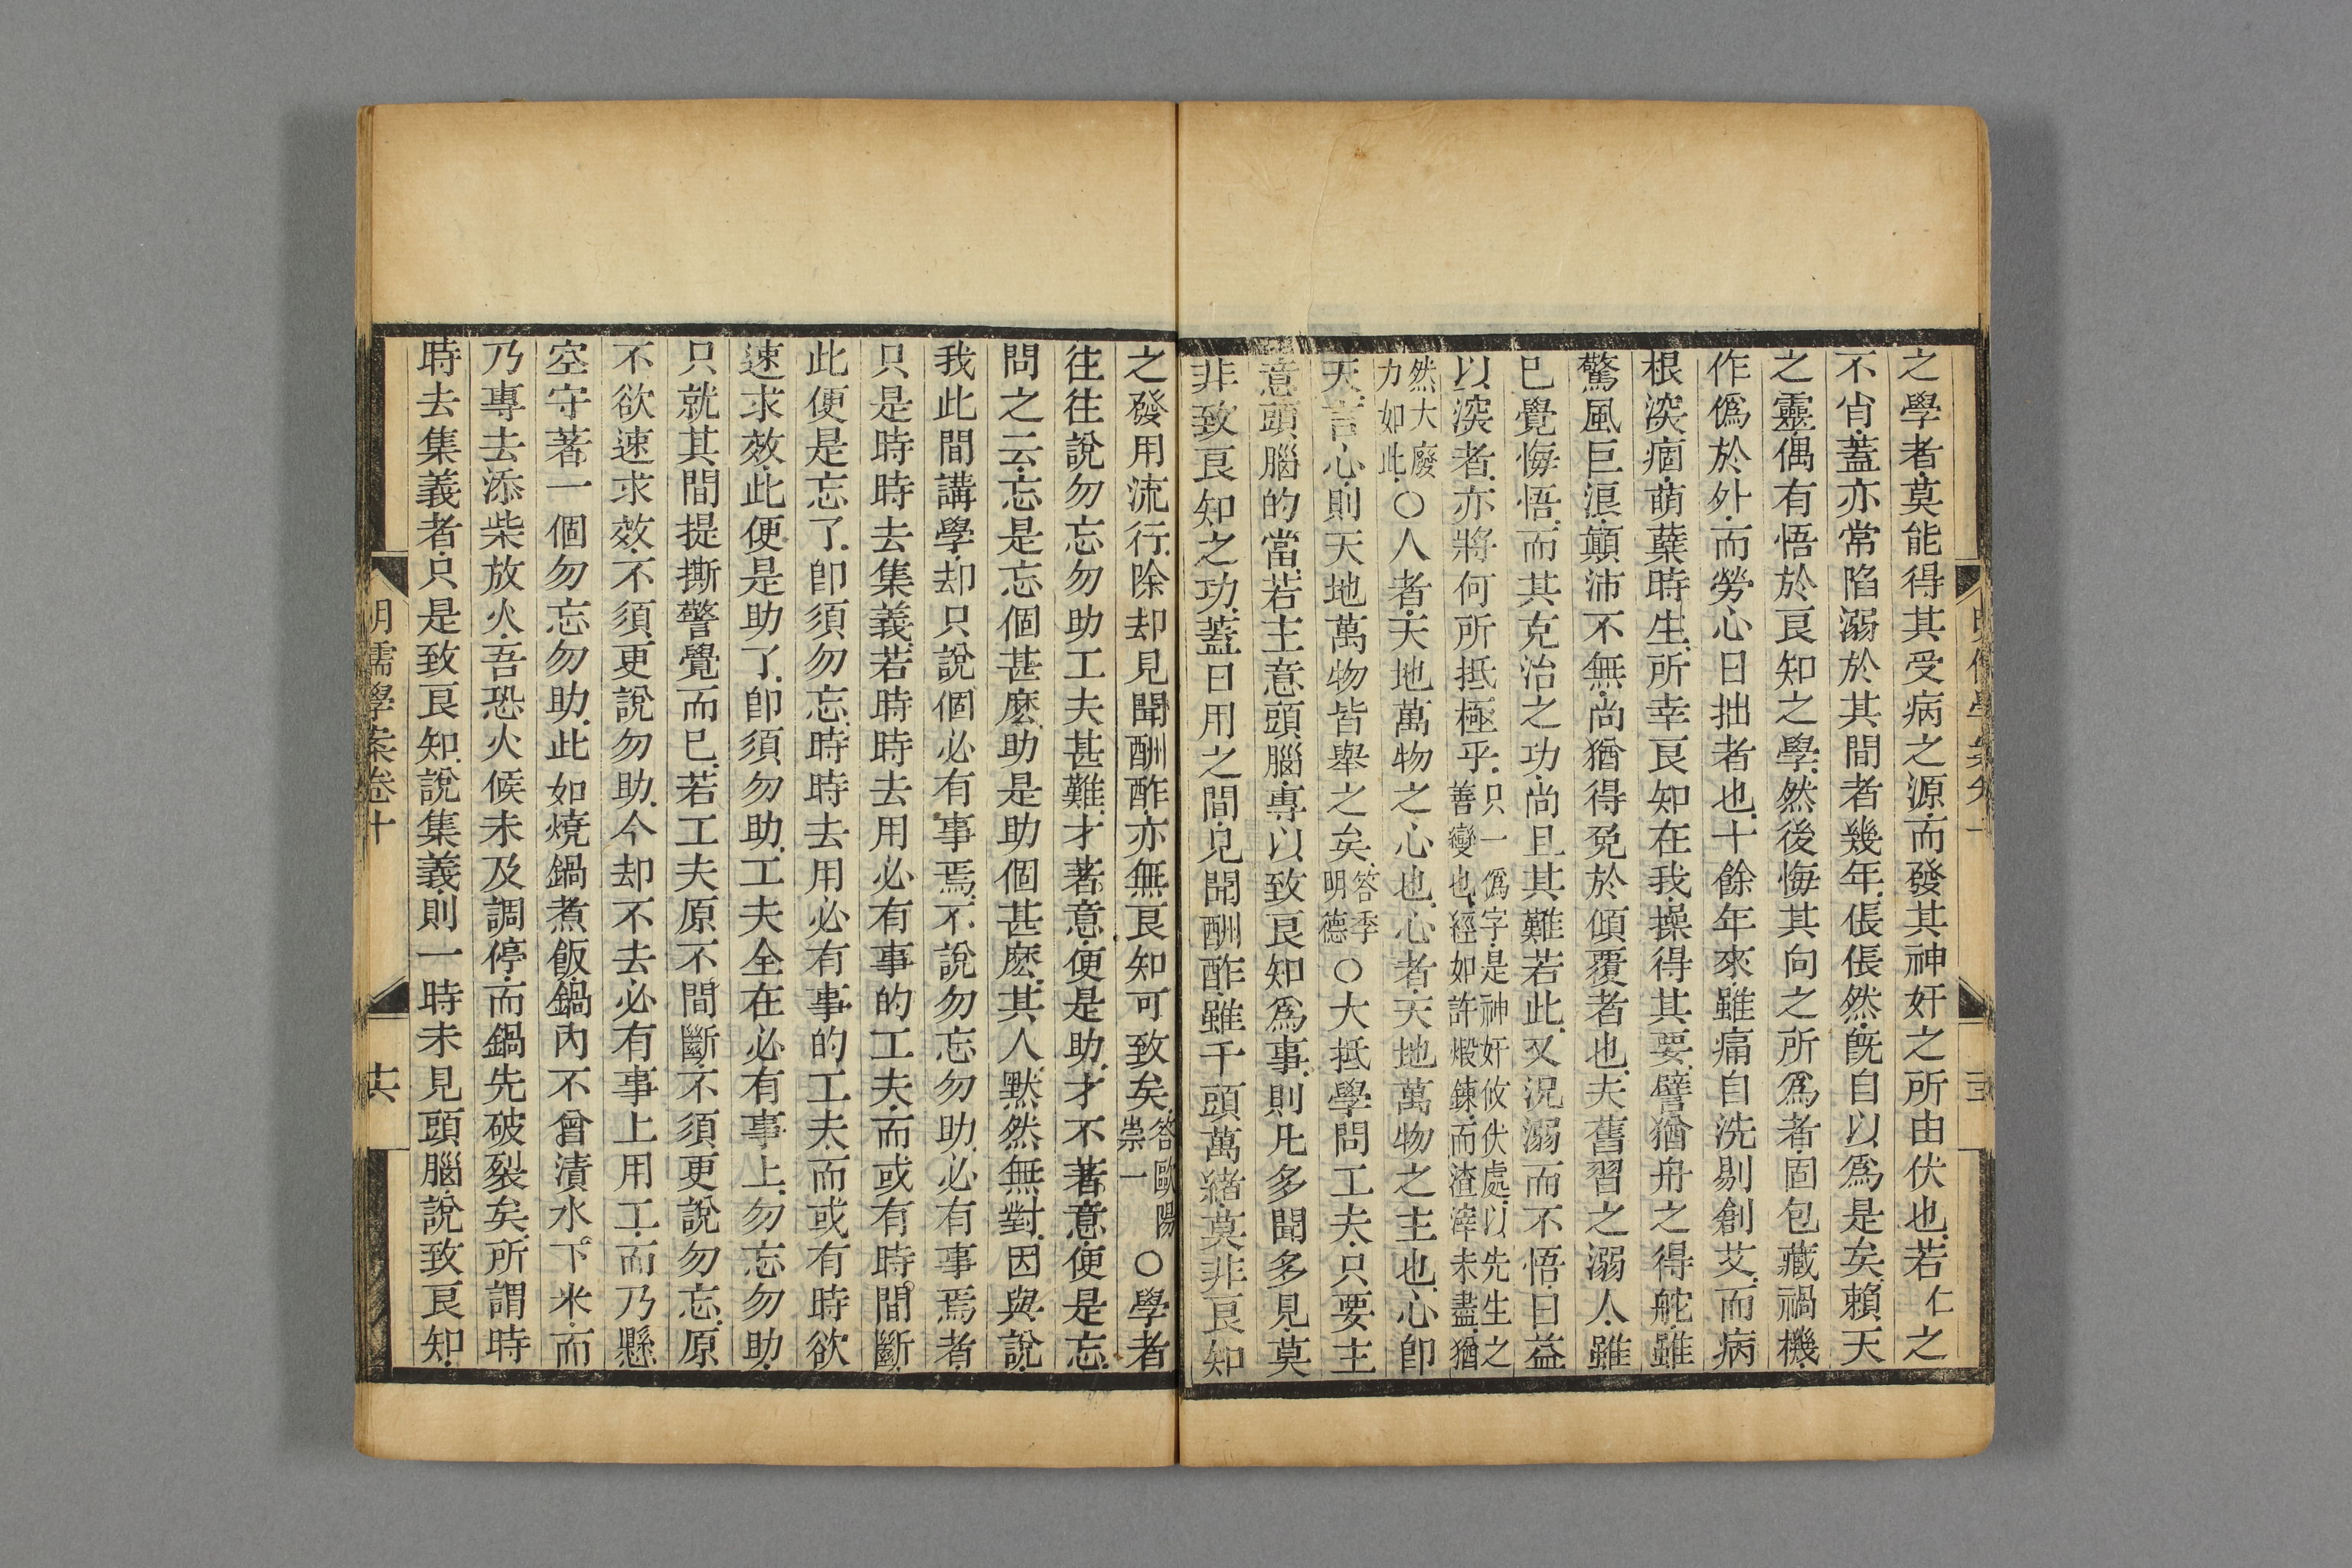 之學者莫能得其受病之源而發其神奸之所由伏也若仁之
不肖蓋亦常陷溺於其間者幾年倀倀然旣自以爲是矣賴天
之靈偶有悟於良知之學然後悔其向之所爲者固包藏禍機
作僞於外而勞心日拙者也十餘年來雖痛自洗剔創艾而病
根深痼萌蘖時生所幸良知在我操得其要譬猶舟之得舵雖
驚風巨浪顛沛不無尚猶得免於傾覆者也夫舊習之溺人雖
已覺悔悟而其克治之功尚且其難若此又況溺而不悟日益
以深者亦將何所抵極乎只一僞字是神奸攸伏處以先生之
善變也經如許煅鍊而渣滓未盡猶
然大廢
力如此○人者天地萬物之心也心者天地萬物之主也心卽
天言心則天地萬物皆舉之矣答季
明德○大抵學問工夫只要主
意頭腦的當若主意頭腦專以致良知爲事則凡多聞多見莫
非致良知之功蓋日用之間見聞酬酢雖千頭萬緒莫非良知
之發用流行除却見聞酬酢亦無良知可致矣答歐陽
崇一○學者
往往說勿忘勿助工夫甚難才著意便是助才不著意便是忘
問之云忘是忘個甚麽助是助個甚麽其人默然無對因與說
我此間講學却只說個必有事焉不說勿忘勿助必有事焉者
只是時時去集義若時時去用必有事的工夫而或有時間斷
此便是忘了卽須勿忘時時去用必有事的工夫而或有時欲
速求效此便是助了卽須勿助工夫全在必有事上勿忘勿助
只就其間提撕警覺而已若工夫原不間斷不須更說勿忘原
不欲速求效不須更說勿助今却不去必有事上用工而乃懸
空守著一個勿忘勿助此如燒鍋煮飯鍋內不曾漬水下米而
乃專去添柴放火吾恐火候未及調停而鍋先破裂矣所謂時
時去集義者只是致良知說集義則一時未見頭腦說致良知
明儒學案卷十
十六